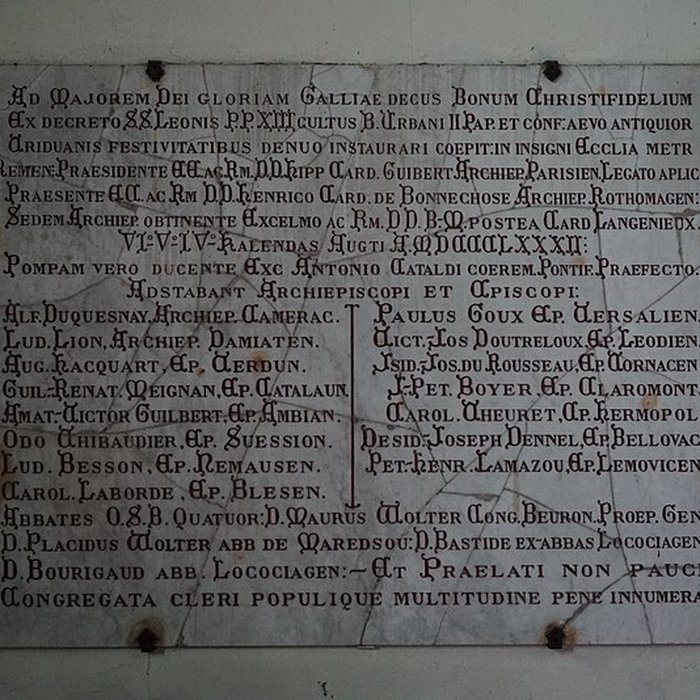 Ad Majorem Dei gloriam Galliae decus Bonum Christifidelium
Ex decreto S.S. Leonis P.P. XIII cultus B. Urbani II Pap. et conf: aevo antiquior
Triduanis festivitatibus denuo instaurari coepit: in insigni Ecclia metr
Remen: Praesidente E.E. ac Rm. D.D. Hipp Card. Guibert Archiep. Parisien. Legato aplic
Praesente E.C. ac Rm D.D. Henrico Card. de Bonnechose Archiep. Rothomagen:
Sedem Archiep. obtinente Excelmo ac Rm. D D. B-M. postea Card Langenieux.
VI° V° IV° Kalendas Augti A. MDCCCLXXXII:
Pompam vero ducente Exc Antonio Cataldi coerem. Pontif. Praefecto.
Adstabant Archiepiscopi et Episcopi:
Alf. Duquesnay, Archiep. Camerac.
Lud. Lion, Archiep. Damiaten.
Aug. Hacquart, Ep. Verdun.
Guil-Renat. Meignan, Ep. Catalaun.
Amat-Victor Guilbert, Ep. Ambian.
Odo Thibaudier, Ep. Suession.
Lud. Besson, Ep. Nemausen.
Carol. Laborde, Ep. Blesen.
Paulus Goux Ep. Versalien.
Vict.-Jos Doutreloux, Ep. Leodien.
Isid.-Jos. du Rousseau, Ep. Tornacen
J.-Pet. Boyer Ep. Claromont.
Carol. Theuret, Ep. Hermopol
Desid.-Joseph Dennel, Ep. Bellovac
Pet.-Henr. Lamazou, Ep. Lemovicen
Abbates O.S.B. Quatuor: D. Maurus Wolter Cong. Beuron. Proep. Gen
D. Placidus Wolter abb de Maredsou: D. Bastide ex-abbas Locociagen
D. Bourigaud abb. Locociagen:— Et Praelati non pauc
Congregata cleri populique multitudine pene innumera